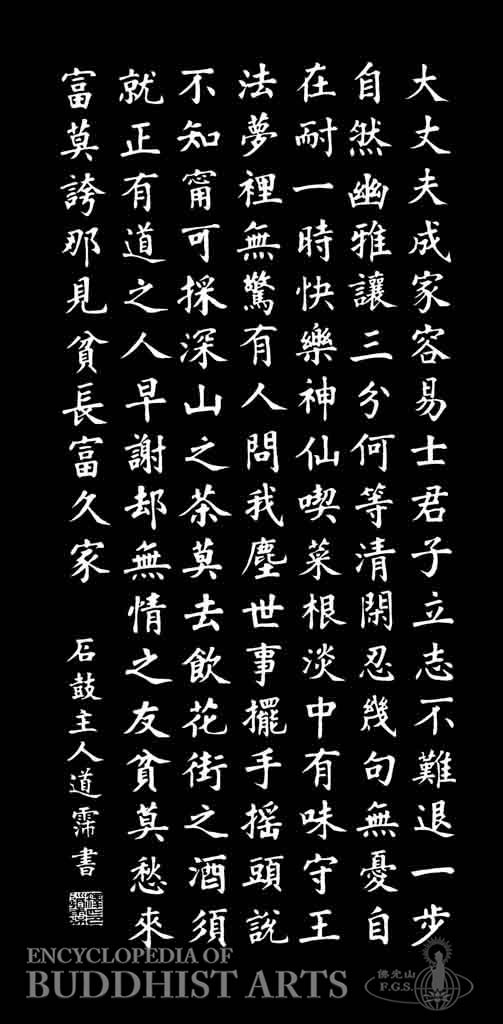 大丈夫成家容易士君子立志不難退一步
自然幽雅讓三分何等清閑忍幾句無憂自
在耐一時快樂神仙喫菜根淡中有味守王
法夢裡無驚有人問我塵世事擺手搖頭說
不知甯可採深山之茶莫去飲花街之酒須
就正有道之人早謝却無情之友貧莫愁來
富莫誇那見貧長富久家
石鼓主人道霈書
ENCYCLOPEDIA OF
BUDDHIST ARTS
佛光山
F.G.S.